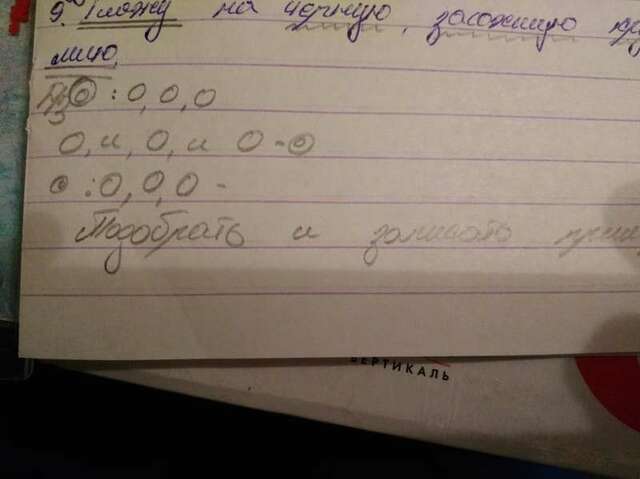 9. Гляжу на чёрную, засохшую
лицо.
О : О, О, О
О, и, О, и О - О
О : О, О, О -
Подобрать и записать
ВЕРТИКАЛЬ